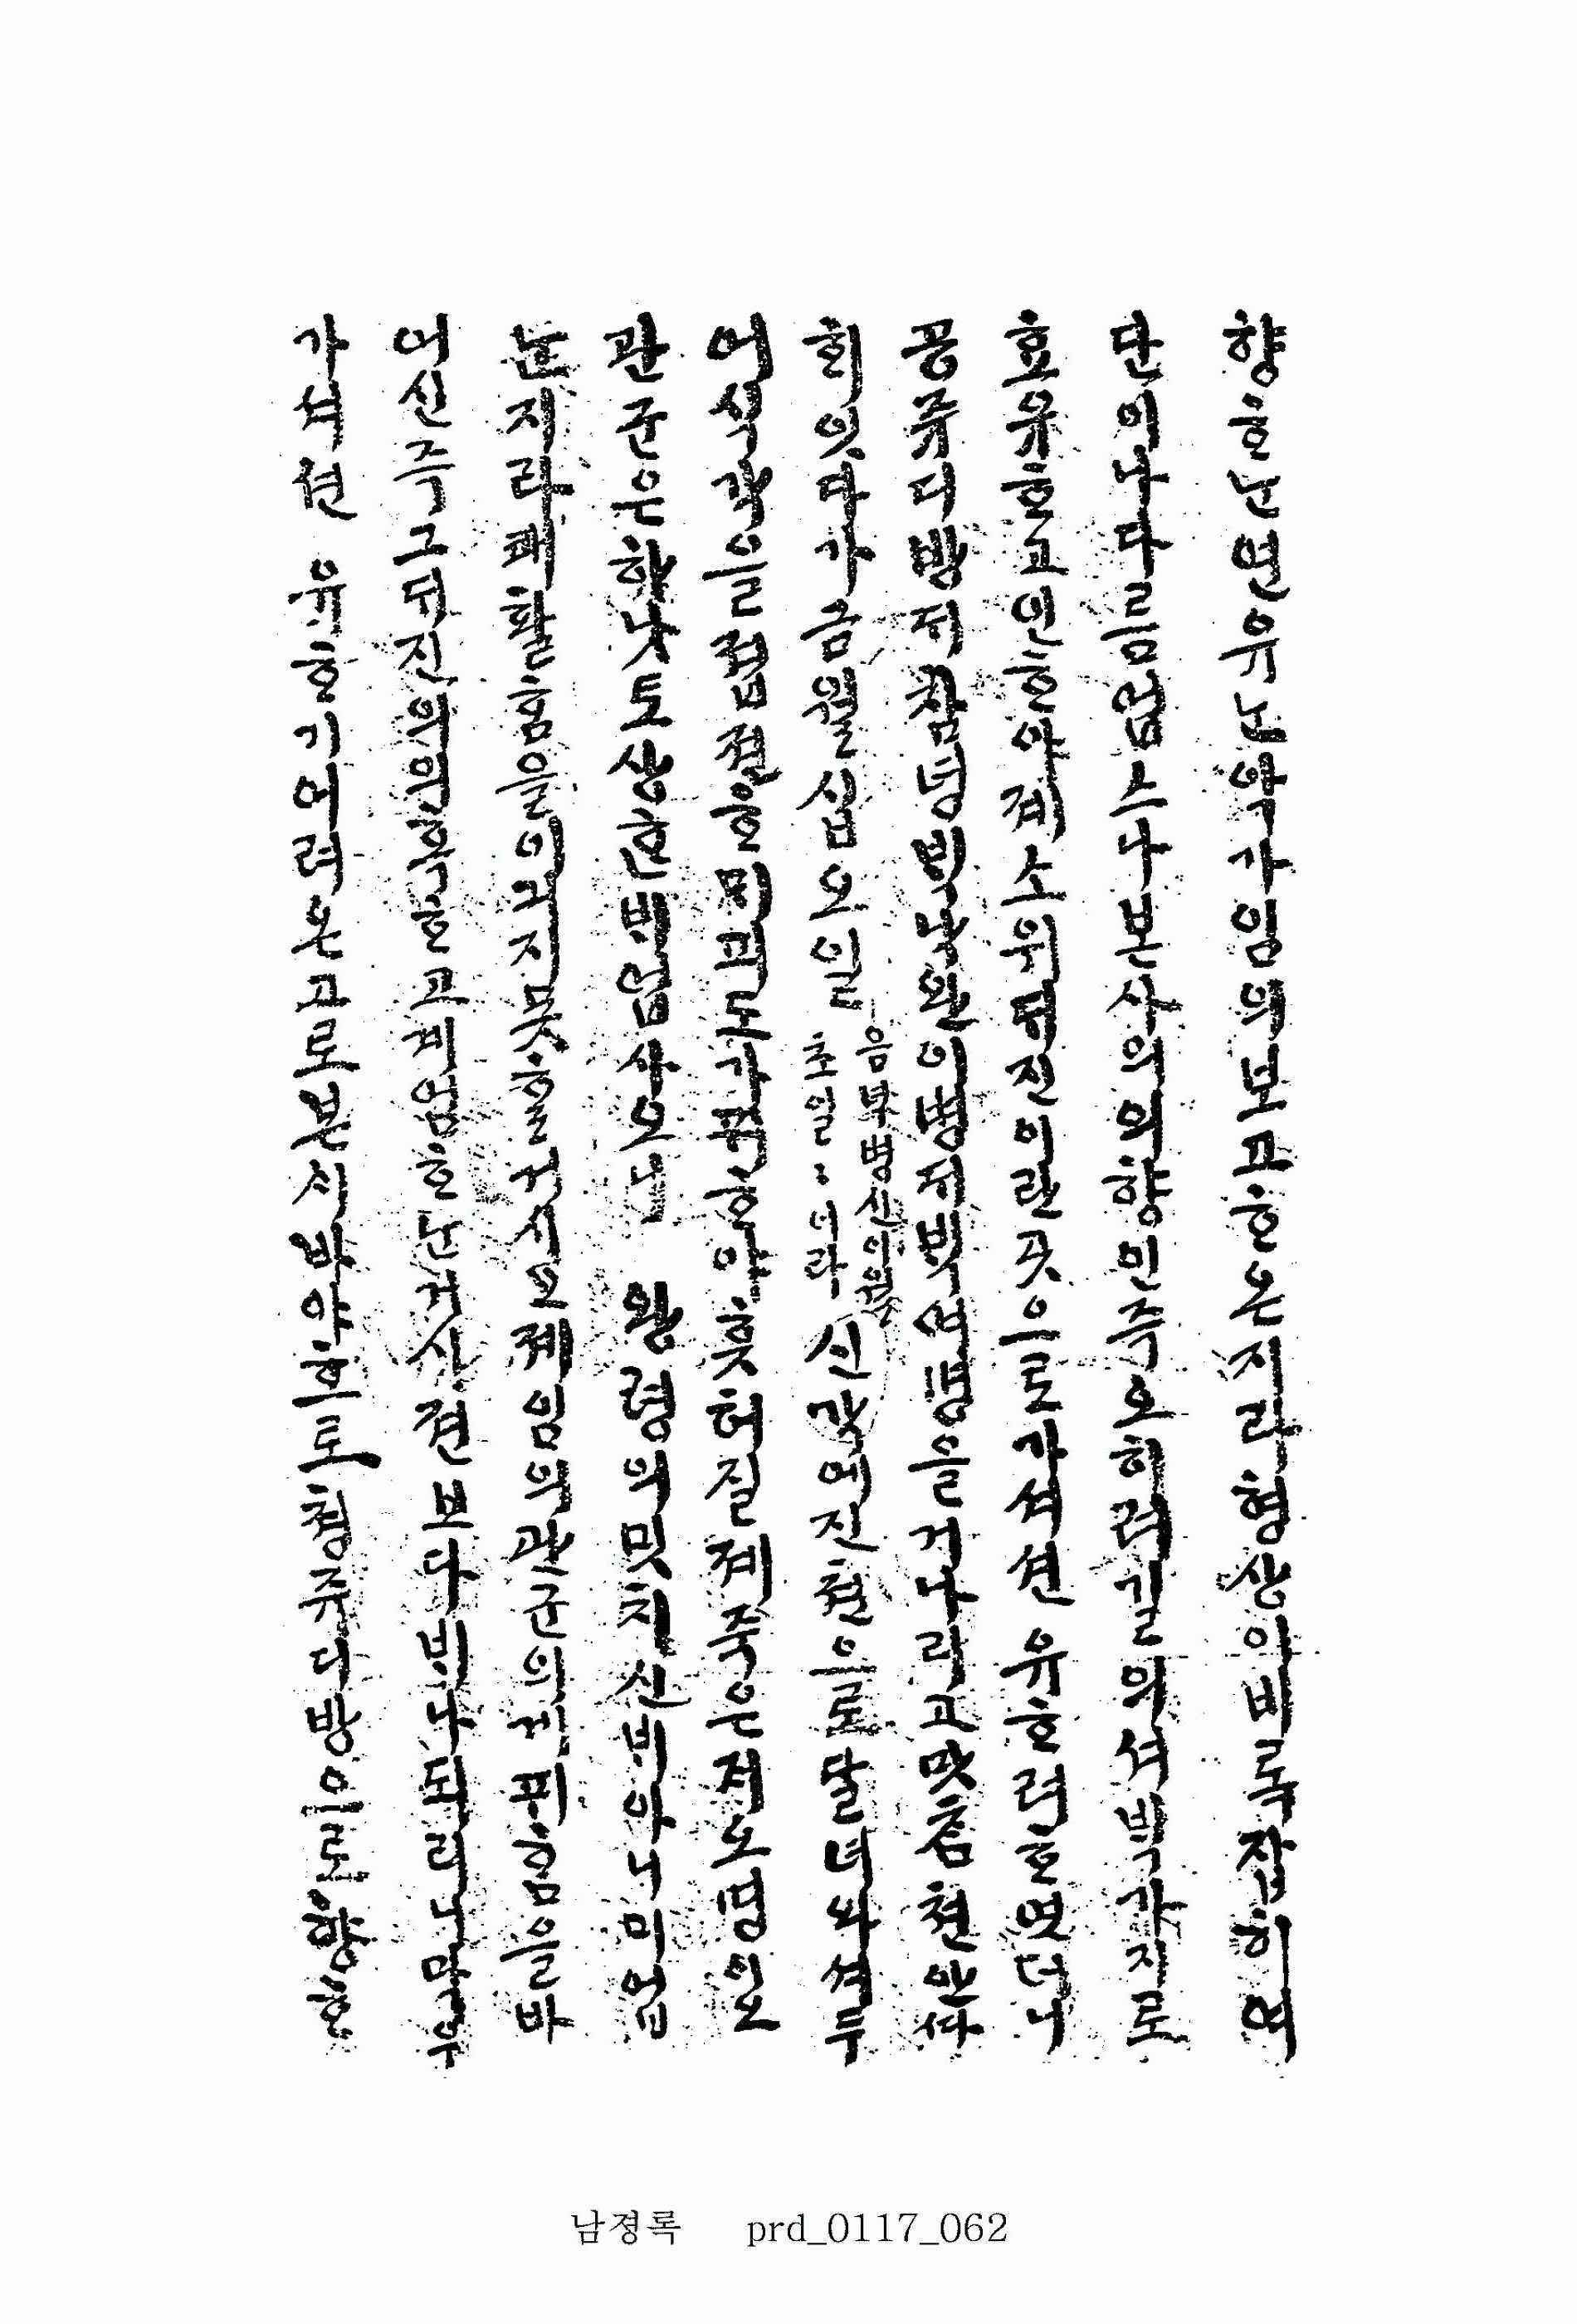 향ᄒᆞᄂᆞᆫ 연유ᄂᆞᆫ 악가 임의 보고ᄒᆞ온지라 형상이 비록 잡히여
단이나 다름업스나 본사의 의향인즉 오히려 길의셔 ᄇᆡᆨ가지로
효유ᄒᆞ고 인ᄒᆞ야 계 소위 뎌진이란 곳으로 가셔션 유ᄒᆞ려 ᄒᆞ엿더니
공쥬 ᄃᆡ방 져 참녕 ᄇᆡᆨ낙완이 병져 ᄇᆡᆨ여명을 거나리고 맛ᄎᆞᆷ 쳔안 ᄯᅡ
회잇다가 금월 십오일
음부병신이월
초일ᄂᆞᆫ이라
신각에 진쳔으로 달녀와셔 두
어 식각을 졉젼ᄒᆞᄆᆡ 피도가 ᄑᆡᄒᆞ야 흣허질 졔 죽은 저 오명이오
관군은 하낫도 상ᄒᆞᆫ ᄇᆡ 업사오니 왕령의 밋치신 ᄇᆡ 아니미 업
ᄂᆞᆫ지라 쾌활홈을 이긔지 못ᄒᆞᆯ 거시오 졔임의 관군의게 ᄑᆡ홈을 바
어신즉 그 뒤진의 의혹ᄒᆞ고 계엄ᄒᆞᄂᆞᆫ 거시 젼보다 ᄇᆡ나 되리니 마구
가셔션 유ᄒᆞ기 어려온 고로 본시 바야흐로 쳥쥬 ᄃᆡ방으로 향ᄒᆞ
남졍록 prd_0117_062